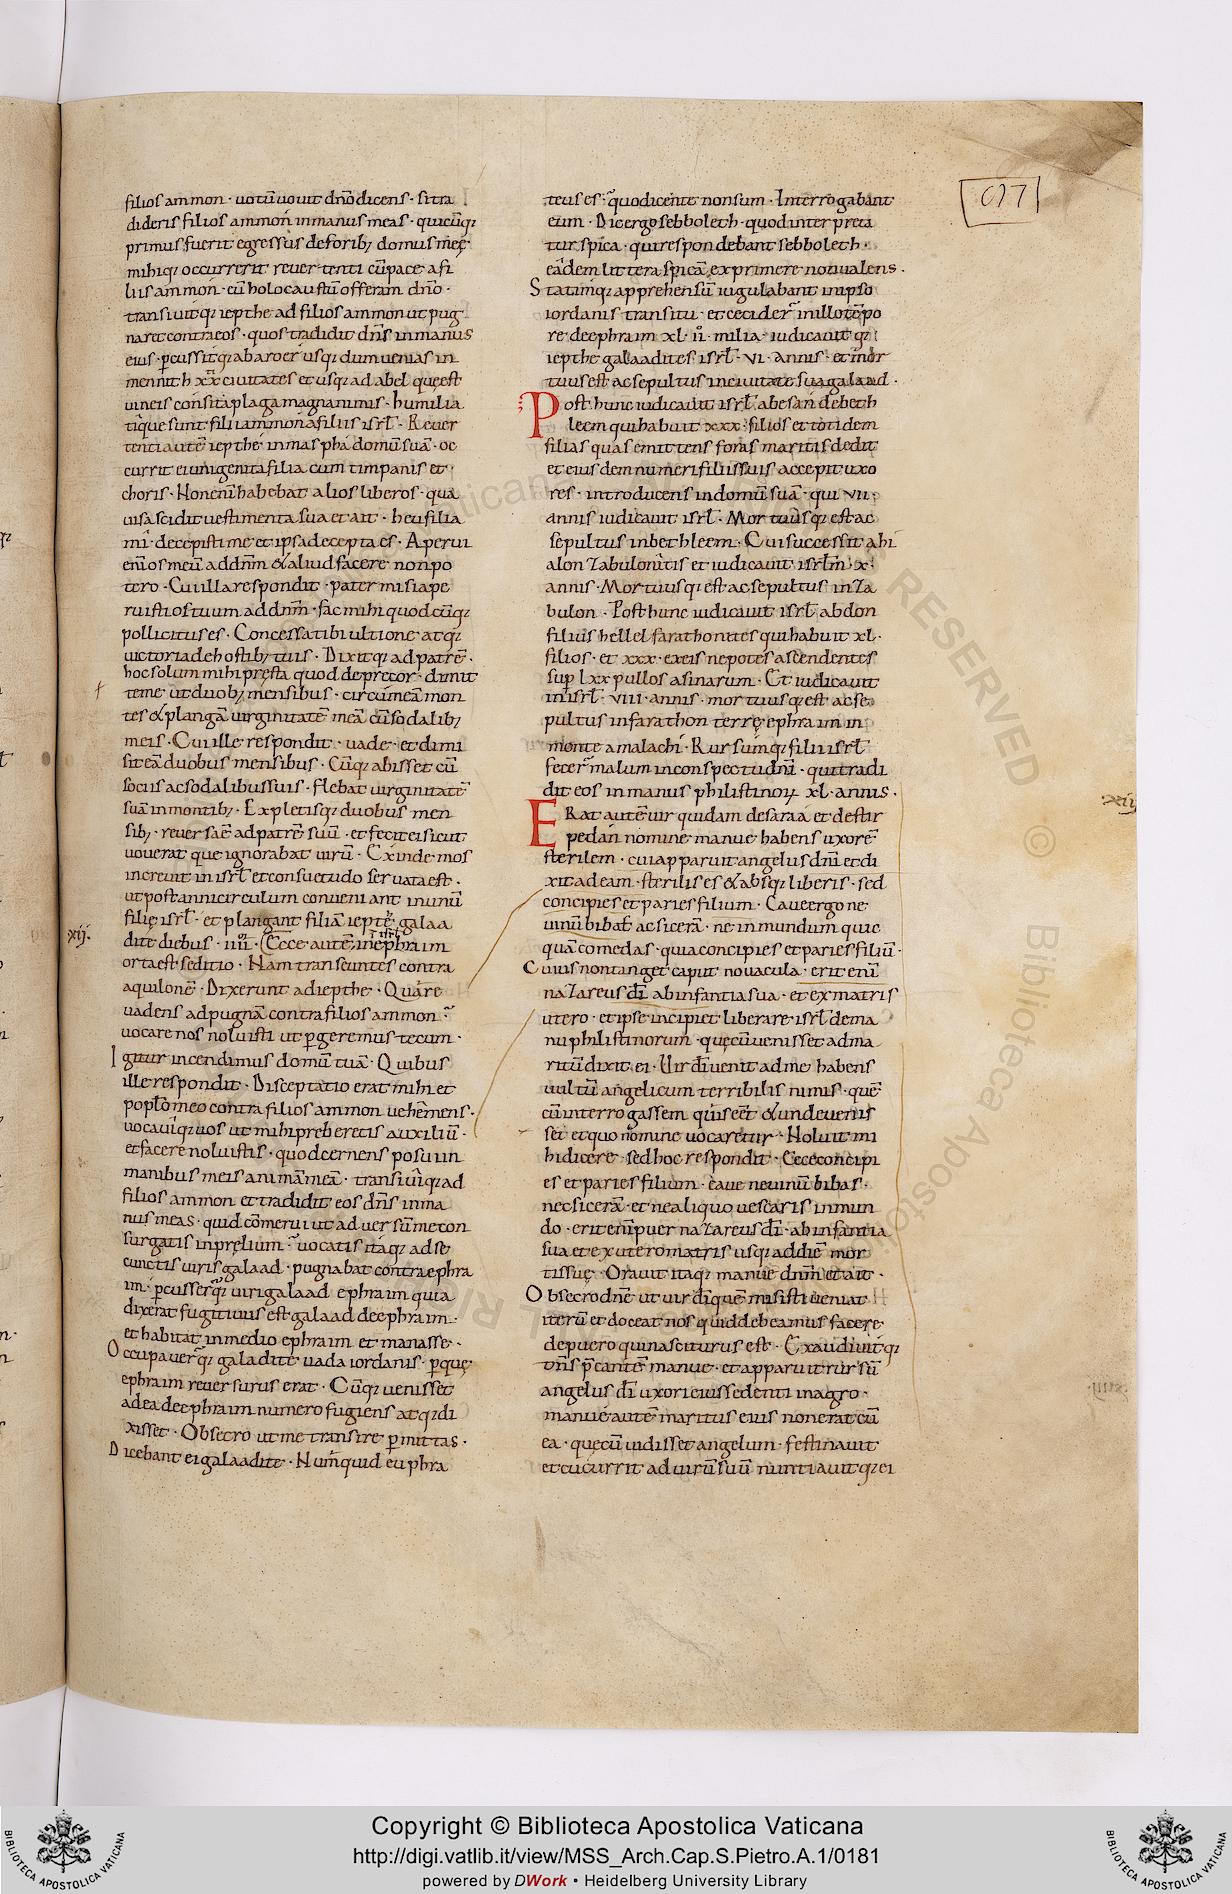 filios ammon · uotū uouit dn̄o dicens · si tra
dideris filios ammon in manus meas · quicūq;
primus fuerit egressus de forib; domus męę ·
mihiq; occurrerit reuertenti cū pace a fi
liis ammon · eū holocaustū offeram dn̄o ·
transiuitq; iepthe ad filios ammon ut pug
naret contra eos · quos tradidit dn̄s in manus
eius · ꝑcussitq; ab aroer usq; dum uenias in
mennith xx ciuitates et usq; ad abel quę est
uineis consita plaga magna nimis · humilia
tiq̃ue sunt filii ammon a filiis isrl̄ · Reuer
tenti autē iepthe in maspha domū suā · oc
currit ei unigenita filia cum timpanis et
choris · Non enī habebat alios liberos · qua
uisa scidit uestimenta sua et ait · heu filia
mī · decepisti me et ipsa decepta es · Aperui
enī os meū ad dnm̄ & aliud facere non po
tero · Cui illa respondit · pater mi si ape
ruisti os tuum ad dnm̄ · fac mihi quodcūq;
pollicitus es · Concessa tibi ultione atq;
uictoria de hostib; tuis · Dixitq; ad patrē ·
hoc solum mihi pręsta quod deprecor · dimit
te me ut duob; mensibus · circumeā mon
tes & plangā uirginitatē meā cū sodalib;
meis · Cui ille respondit · uade · et dimi
sit eā duobus mensibus · Cūq; abisset cū
sociis ac sodalibus suis · flebat uirginitatē
suā in montib; · Expletisq; duobus men
sib; · reuersa ē ad patrē suū · et fecit ei sicut
uouerat que ignorabat uirū · Exinde mos
increuit in isrl̄ et consuetudo seruata est ·
ut post anni circulum conueniant in unū
filię isrl̄ · et plangant filiā iepte galaa
dite diebus · iiii · Ecce autē in ephraim
xij.
orta est seditio · Nam transeuntes contra
aquilonē · Dixerunt ad iepthe · Quare
uadens ad pugnā contra filios ammon
uocare nos noluisti ut ꝑgeremus tecum ·
Igitur incendimus domū tuā · Quibus
ille respondit · Disceptatio erat mihi et
poplo meo contra filios ammon uehemens ·
uocauiq; uos ut mihi preberetis auxiliū ·
et facere noluistis · quod cernens posui in
manibus meis animā meā · transiuiq; ad
filios ammon et tradidit eos dn̄s in ma
nus meas · quid cōmerui ut aduersū me con
surgatis in pręlium · uocatis itaq; ad se
cunctis uiris galaad · pugnabat contra ephra
im · ꝑcusserq; uiri galaad ephraim quia
dixerat fugitiuus est galaad de ephraim ·
et habitat in medio ephraim et manasse ·
Occupauerq; galadite uada iordanis · ꝑ quę
ephraim reuersurus erat · Cūq; uenisset
ad ea de ephraim numero fugiens atq; di
xisset · Obsecro ut me transire ꝑmittas ·
Dicebant ei galaadite · Numquid euphra
teus es · quo dicente non sum · Interrogabant
eum · Dic ergo sebboleth · quod interpreta
tur spica · qui respondebant sebboleth ·
eādem littera spicā exprimere non ualens ·
Statimq; apprehensū iugulabant in ipso
iordanis transitu · et cecider̄ in illo tēpo
re de ephraim xl · ii · milia · iudicauit q;
iepthe galaadites isrl̄ · vi · annis · et mor
tuus est ac sepultus in ciuitate sua galaad ·
Post hunc iudicauit isrl̄ abesan de beth
leem qui habuit xxx · filios et totidem
filias quas emittens foras maritis dedit
et eiusdem numeri filiis suis accepit uxo
res · introducens in domū suā · qui vii ·
annis iudicauit isrl̄ · Mortuusq; est ac
sepultus in bethleem · Cui successit ahi
alon zabulonitis et iudicauit isrl̄m · x ·
annis · Mortuusq; est ac sepultus in za
bulon · Post hunc iudicauit isrl̄ abdon
filius hellel farathonites qui habuit xl ·
filios · et xxx · ex eis nepotes ascendentes
sup lxx pullos asinarum · Et iudicauit
in isrl̄ · viii · annis · mortuusq; est ac se
pultus in farathon terrę ephraim in
monte amalachi · Rursumq; filii isrl̄
fecer̄ malum in conspectu dn̄i · qui tradi
dit eos in manus philistinoꝝ xl · annis ·
Erat autē uir quidam de saraa et de stir
pe dan nomine manue habens uxorē
sterilem · cui apparuit angelus dn̄i et di
xit ad eam · sterilis es & absq; liberis · sed
concipies et paries filium · Caue ergo ne
uinū bibat̄ ac sicerā · ne inmundum quic
quā comedas · quia concipies et paries filiū ·
Cuius non tanget caput nouacula · erit enī
nazareus dī ab infantia sua · et ex matris
utero · et ipse incipiet liberare isrl̄ de ma
nu philistinorum · quę cū uenisset ad ma
ritū dixit ei · Uir dī uenit ad me habens
uultū angelicum terribilis nimis · quē
cū interrogassem quis eēt & unde uenis
set et quo nomine uocaretur · Noluit mi
hi dicere · sed hoc respondit · Ecce concipi
es et paries filium · caue ne uinū bibas ·
nec sicerā · et ne aliquo uescaris inmun
do · erit enī puer nazareus dī · ab infantia
sua et ex utero matris usq; ad diē mor
tis suę · Orauit itaq; manue dnm̄ et ait ·
Obsecro dn̄e ut uir dī quē misisti ueniat
iterū et doceat nos quid debeamus facere
de puero qui nasciturus est · Exaudiuitq;
dn̄s p̄cantē manue · et apparuit rursū
angelus dī uxori eius sedenti in agro ·
manue autē maritus eius non erat cū
ea · quę cū uidisset angelum · festinauit
et cucurrit ad uirū suū nuntiauitq; ei
Copyright © Biblioteca Apostolica Vaticana
http://digi.vatlib.it/view/MSS_Arch.Cap.S.Pietro.A.1/0181
powered by DWork • Heidelberg University Library
BIBLIOTECA APOSTOLICA VATICANA
BIBLIOTECA APOSTOLICA VATICANA